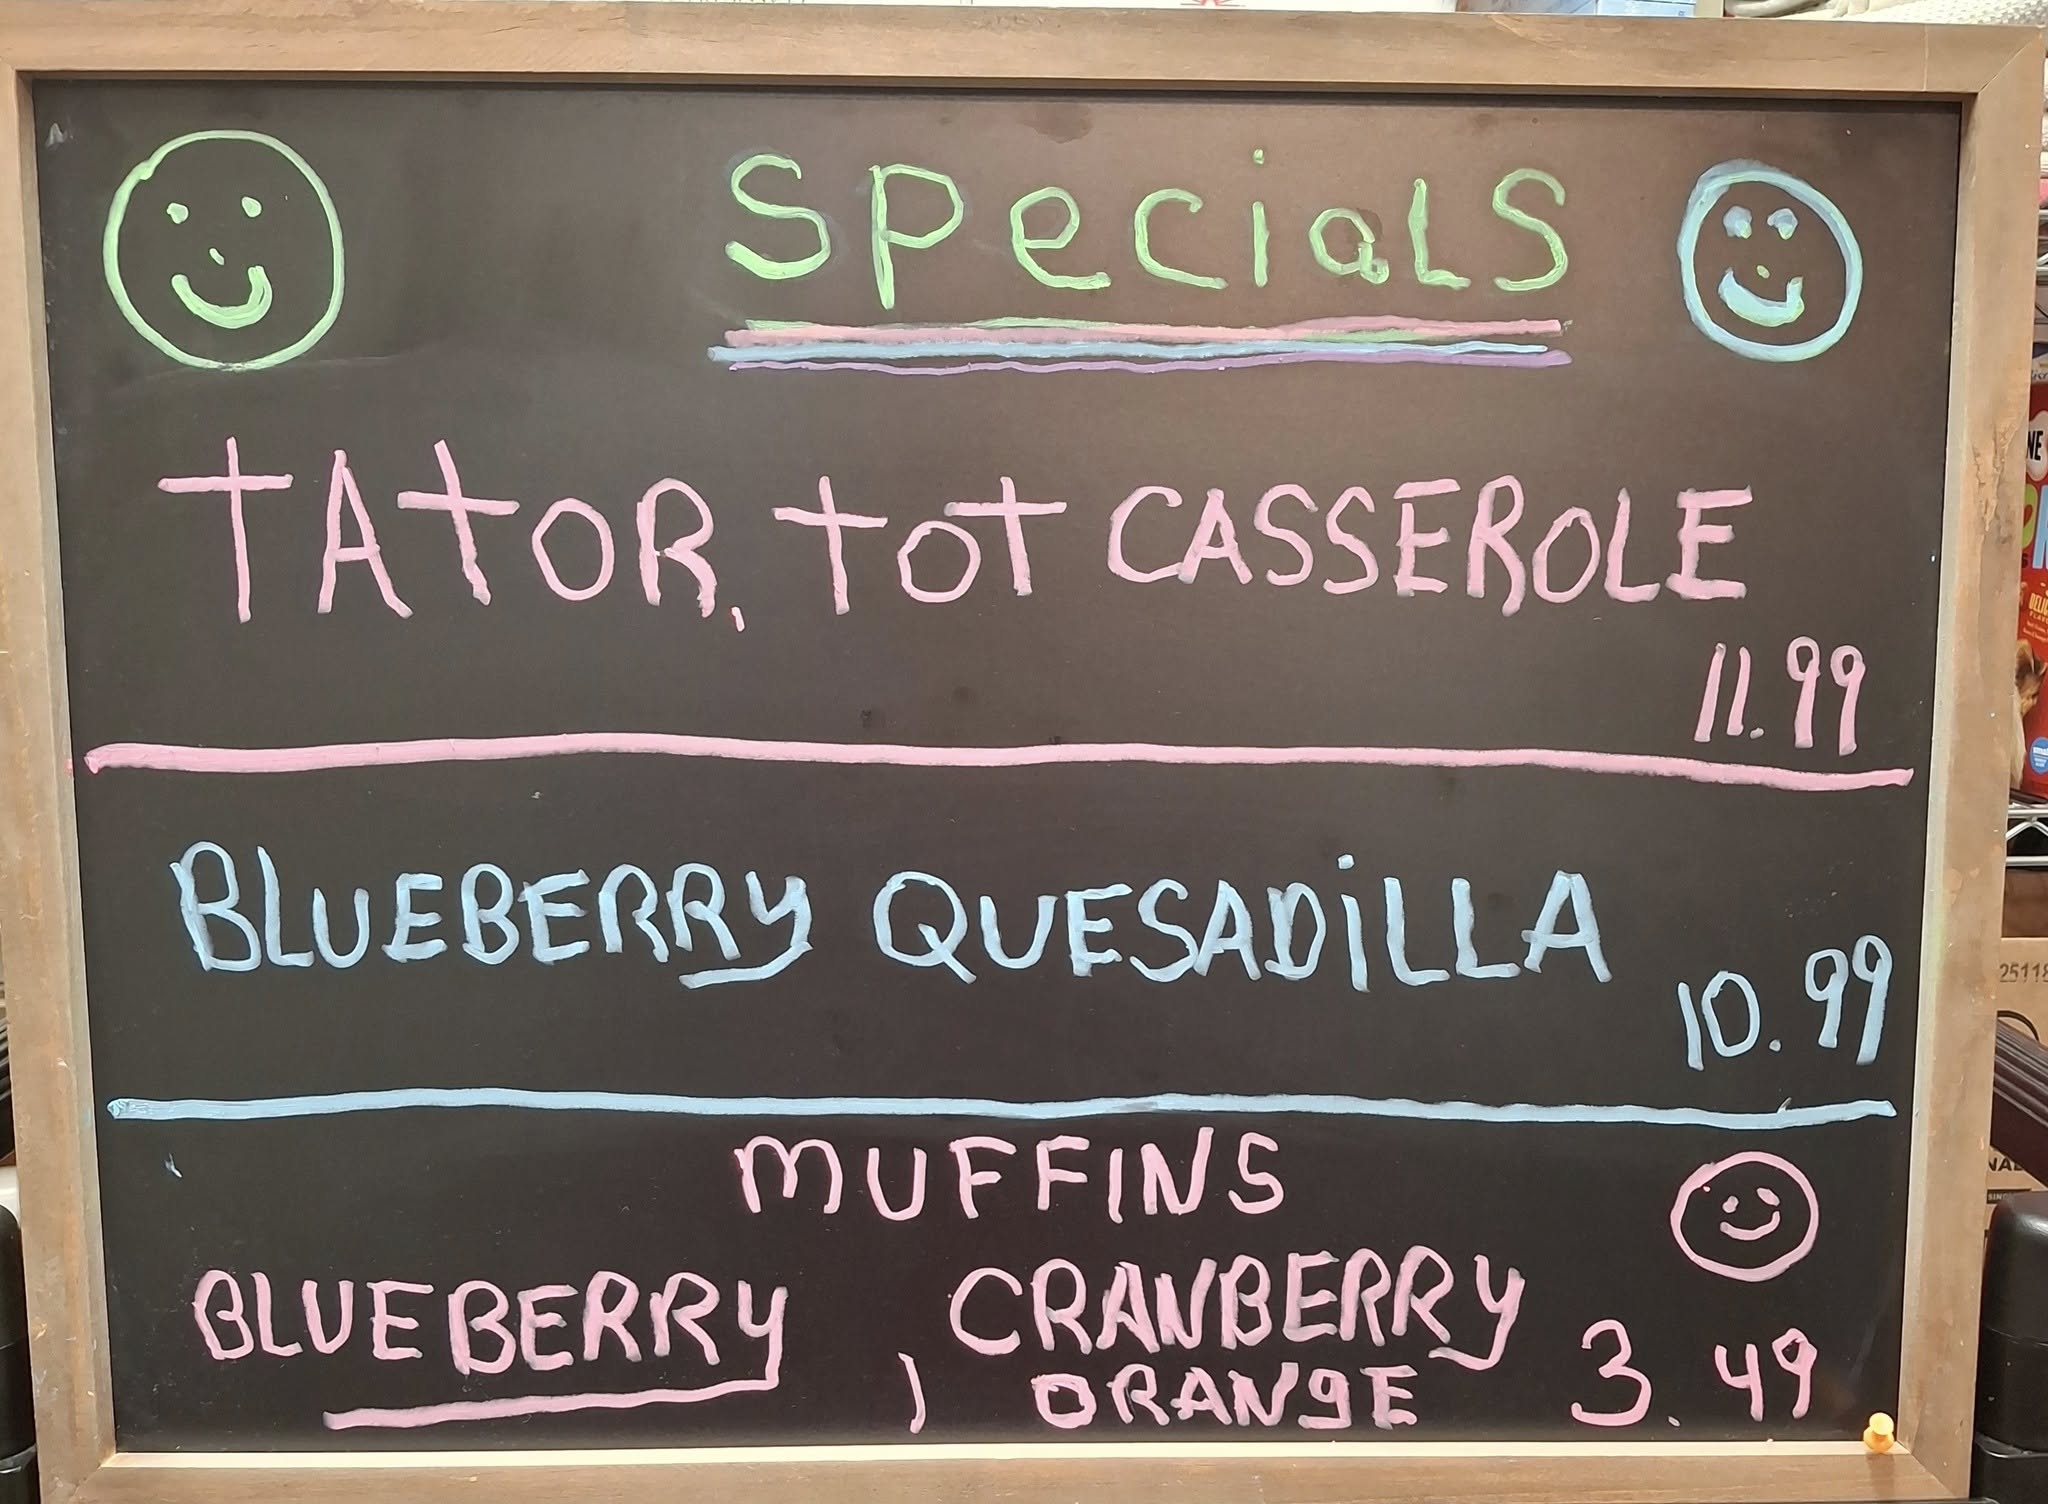 SPeciaLS
TATOR, TOT CASSEROLE
11.99
BLUEBERRY QUESADiLLA
10.99
MUFFINS
BLUEBERRY , CRANBERRY
ORANGE 3.49
NE
DELIC
25118
NAL